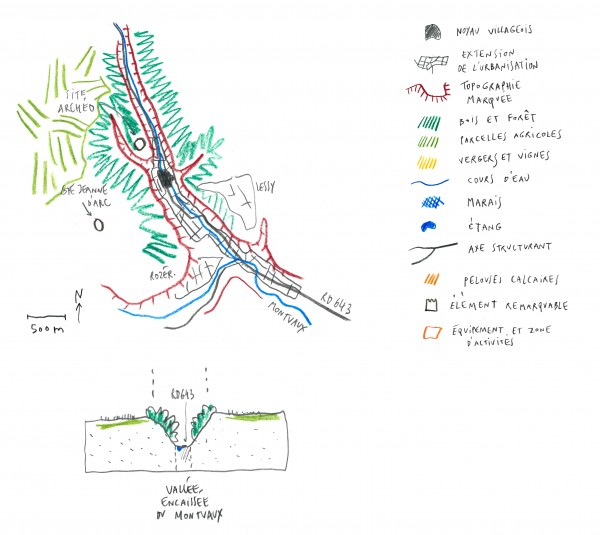 SITE
ARCHÉO
STE JEANNE
D'ARC
LESSY
ROZER.
N
500 m
MONTVAUX
RD 643
NOYAU VILLAGEOIS
EXTENSION
DE L'URBANISATION
TOPOGRAPHIE
MARQUEE
BOIS ET FORÊT
PARCELLES AGRICOLES
VERGERS ET VIGNES
COURS D'EAU
MARAIS
ÉTANG
AXE STRUCTURANT
PELOUSES CALCAIRES
ÉLÉMENT REMARQUABLE
ÉQUIPEMENT ET ZONE
D'ACTIVITÉS
RD643
VALLÉE
ENCAISSÉE
DU MONTVAUX